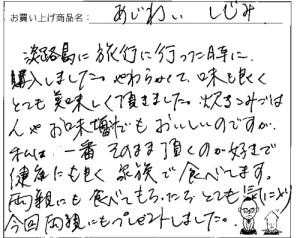 お買い上げ商品名: あじわい しじみ
淡路島に旅行に行った時に
購入しました。やわらかくて、味も良く
とても美味しく頂きました。炊きこみごは
んやお味噌汁でもおいしいのですが、
私は一番そのまま頂くのが好きで
健康にも良く家族で食べてます。
両親にも食べてもらったらとても気に入り
今回両親にもプレゼントしました。